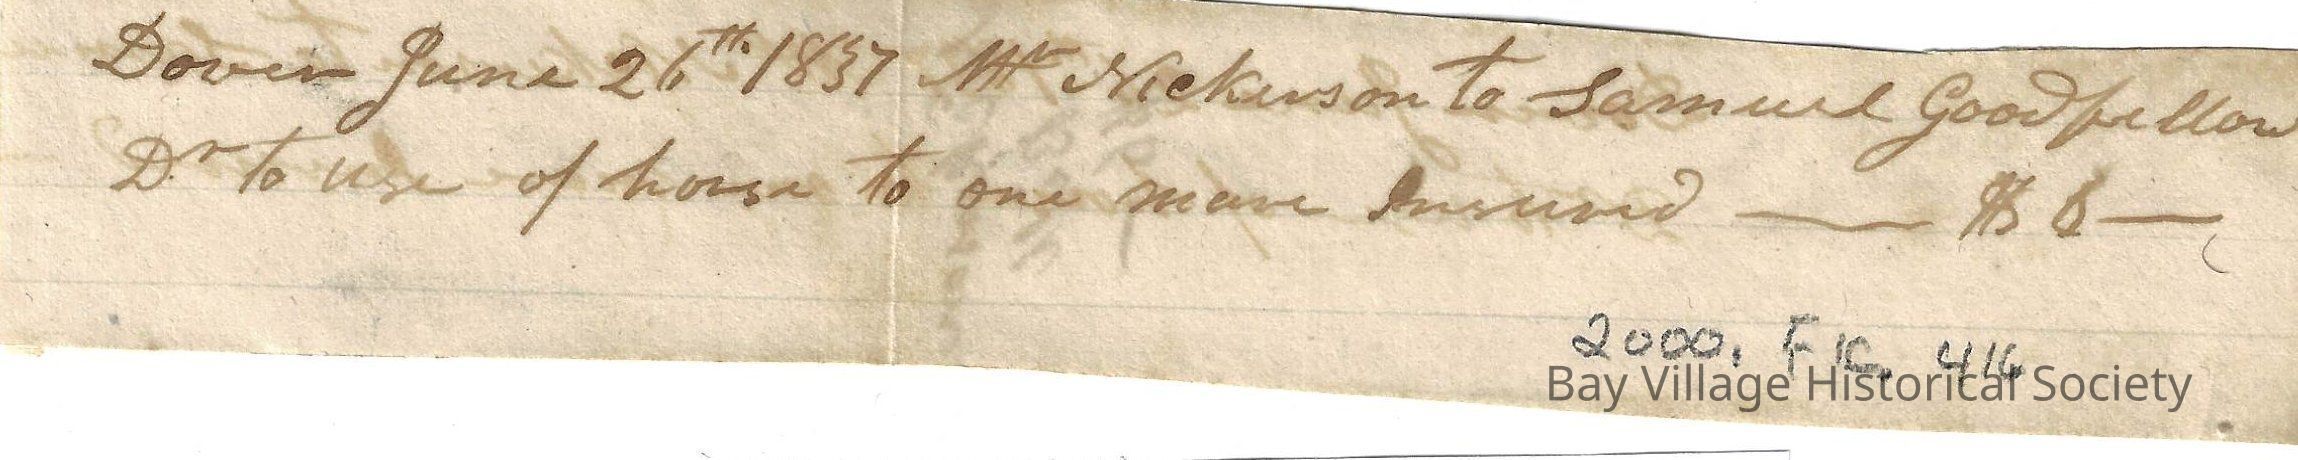 Dover June 26th 1837 Mr Nickerson to Samuel Goodfellow
Dr to use of horse to one mare Insured — $ 6 —
2000. FIC. 416
Bay Village Historical Society